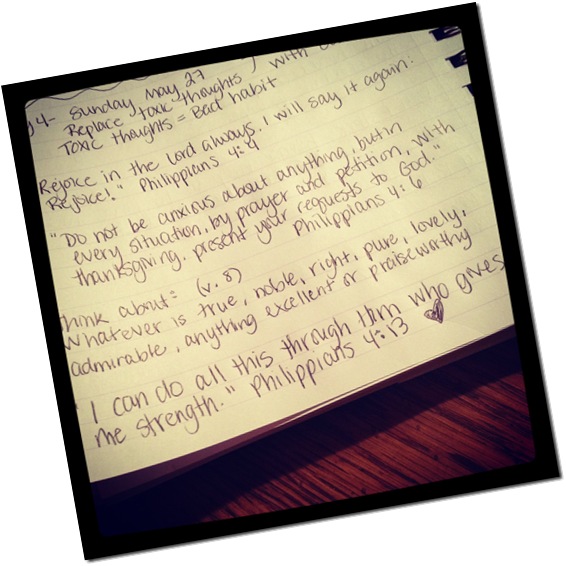 4- Sunday May 27
Replace toxic thoughts / with
Toxic thoughts = Bad habit
Rejoice in the Lord always. I will say it again:
Rejoice!" Philippians 4:4
"Do not be anxious about anything, but in
every situation, by prayer and petition, with
thanksgiving, present your requests to God."
Philippians 4:6
Think about: (v. 8)
Whatever is true, noble, right, pure, lovely,
admirable, anything excellent or praiseworthy
"I can do all this through Him who gives
me strength." Philippians 4:13 ♥